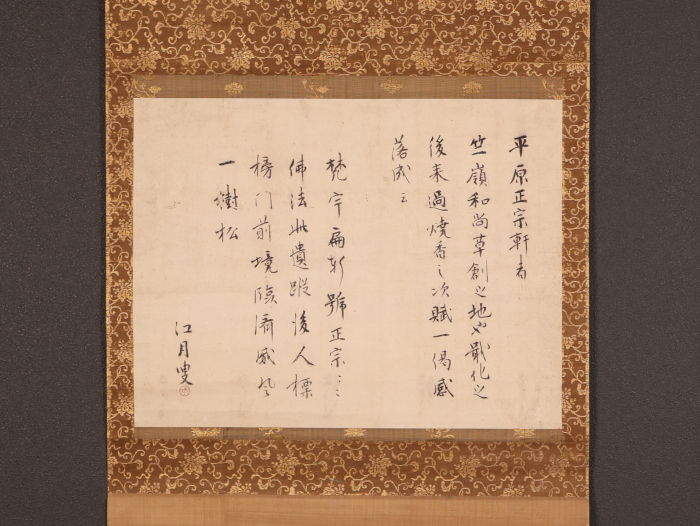 平原正宗軒者
竺嶺和尚草創之地也戢化之
後来過焼香之次賦一偈感
落成云
梵宇扁新號正宗〻〻
佛法此遺蹤後人標
榜門前境臨済威風
一樹松
江月叟